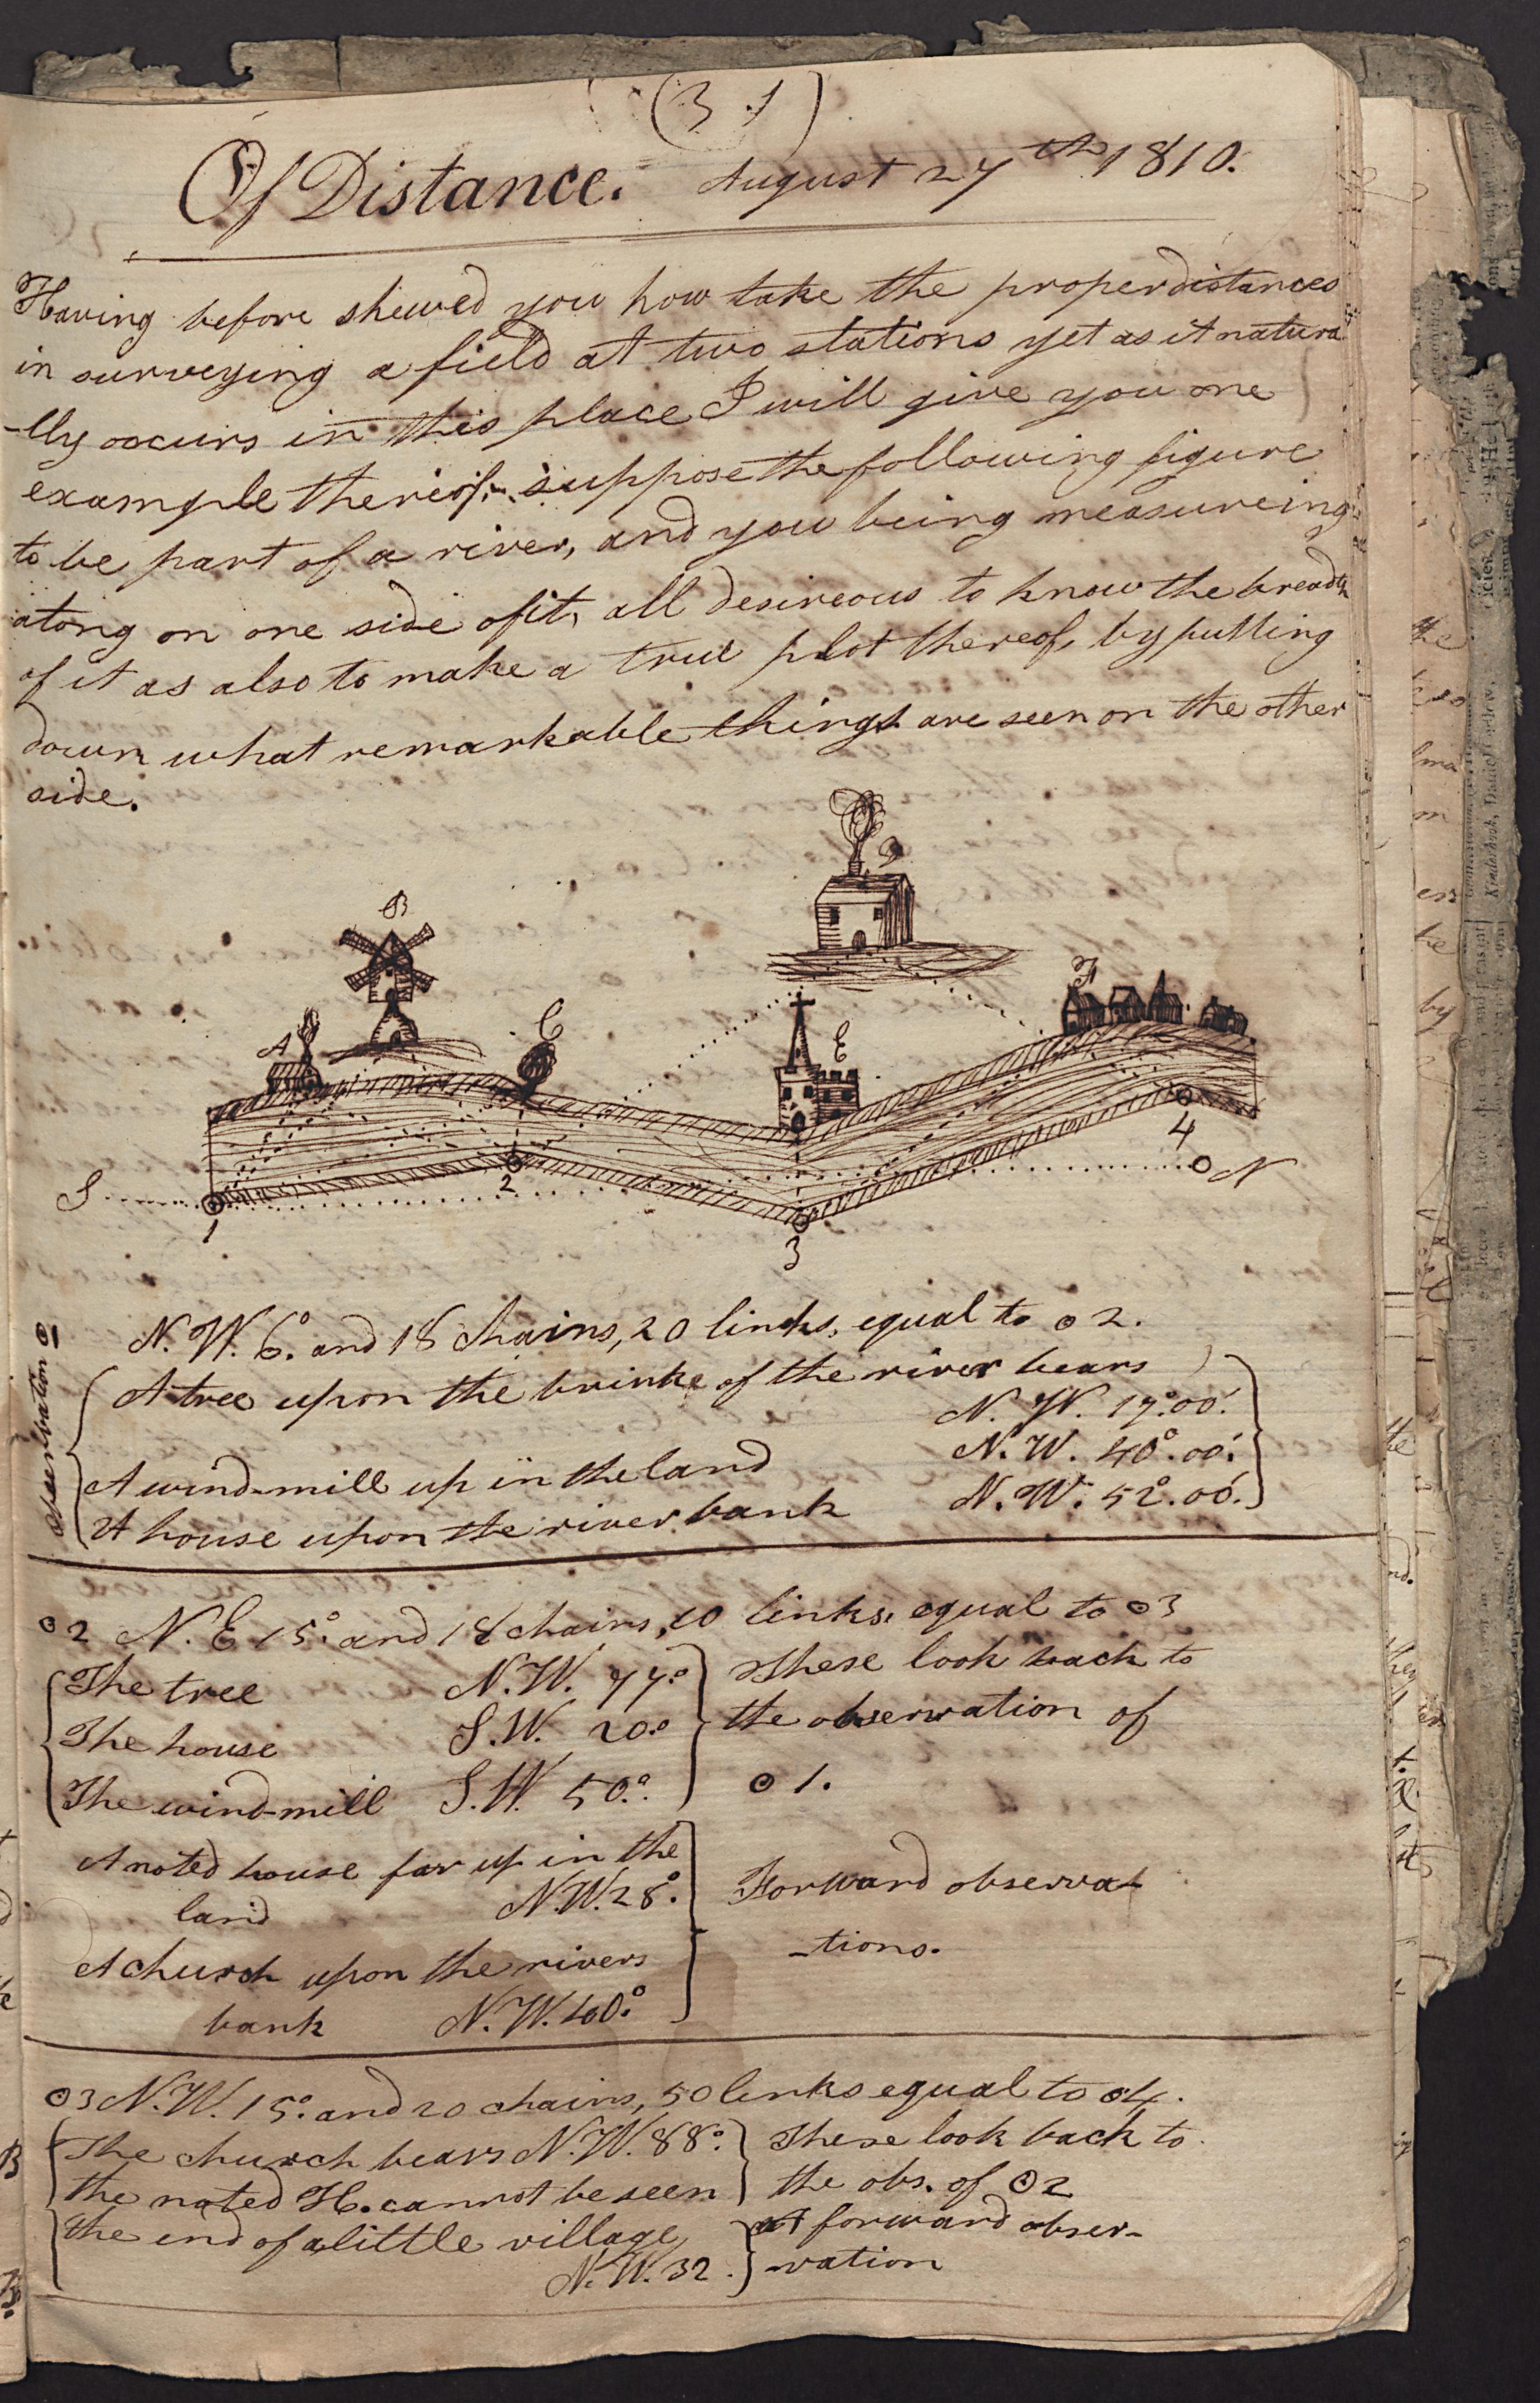 (31)
Of Distance. August 27th 1810.
Having before shewed you how take the proper distances
in surveying a field at two stations yet as it natura
-lly occurs in this place I will give you one
example thereof. suppose the following figure
to be part of a river, and you being measureing
along on one side of it, all desireous to know the breadth
of it as also to make a true plot thereof, by putting
down what remarkable things are seen on the other
side.
D
B
F
A C E
4
S 2 N
1
3
Observation ☉ 1
N. W. 6°. and 18 chains, 20 links, equal to ☉ 2.
A tree upon the brinke of the river bears
N. W. 17°.00'.
A wind-mill up in the land N. W. 40°.00'.
A house upon the river bank N. W. 52°.00'.
☉2 N. E 15°. and 18 chains, 20 links, equal to ☉3
The tree N. W. 77.° These look back to
The house S. W. 20.° the observation of
The wind-mill S. W. 50.° ☉ 1.
A noted house far up in the
land N. W. 28°. Forward observa-
A church upon the rivers -tions.
bank N. W. 40.°
☉3 N. W. 15°. and 20 chains, 50 links equal to ☉4.
The church bears N. W. 88°. These look back to
the noted H. cannot be seen the obs. of ☉2
the end of a little village A forward obser-
N. W. 32. -vation